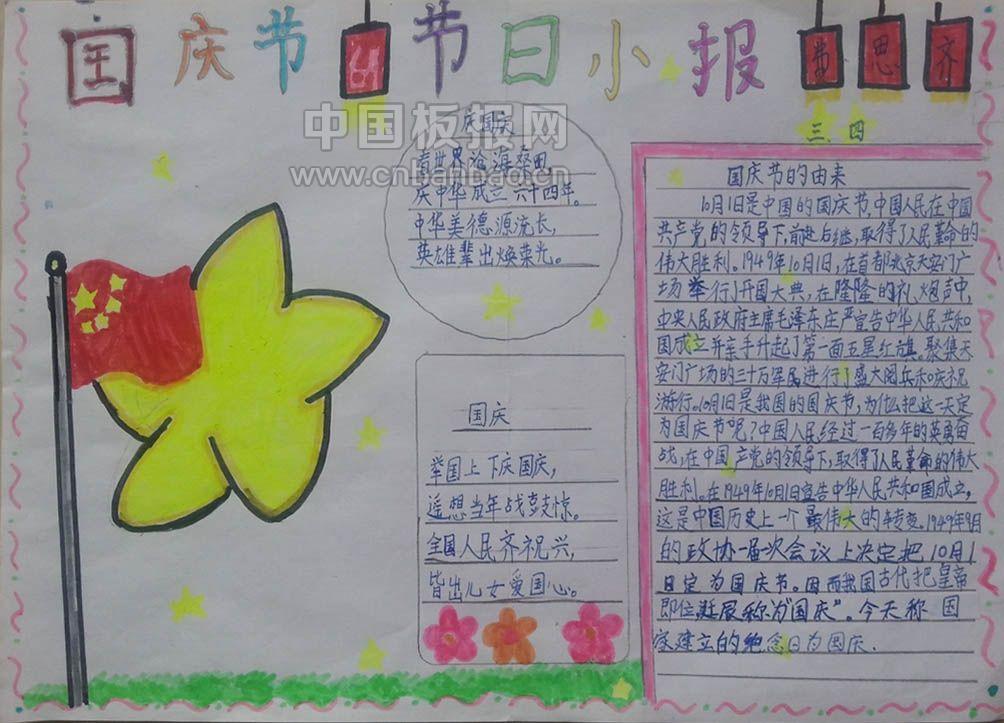 国庆节 节日小报
思齐
三、四
中国板报网
www.cnbanbao.cn
庆国庆
看世界沧海桑田,
庆中华成立六十四年。
中华美德源流长,
英雄辈出焕荣光。
国庆
举国上下庆国庆,
遥想当年战支惊。
全国人民齐祝兴,
皆出儿女爱国心。
国庆节的由来
10月1日是中国的国庆节,中国人民在中国
共产党的领导下,前赴后继,取得了人民革命的
伟大胜利。1949年10月1日,在首都北京天安门广
场举行了开国大典,在隆隆的礼炮声中,
中央人民政府主席毛泽东庄严宣告中华人民共和
国成立并亲手升起了第一面五星红旗。聚集天
安门广场的三十万军民进行了盛大阅兵和庆祝
游行。10月1日是我国的国庆节,为什么把这一天定
为国庆节呢?中国人民经过一百多年的英勇奋
战,在中国产党的领导下,取得了人民革命的伟大
胜利。在1949年10月1日宣告中华人民共和国成立,
这是中国历史上一个最伟大的转变。1949年9月
的政协一届一次会议上决定把10月1
日定为国庆节。因而我国古代把皇帝
即位诞辰称为"国庆"。今天称国
家建立的纪念日为国庆.